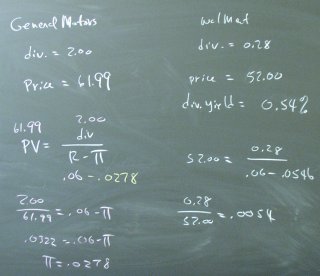 General Motors
div. = 2.00
Price = 61.99
61.99
PV = 2.00 div / R - π
.06 - .0278
2.00 / 61.99 = .06 - π
.0322 = .06 - π
π = .0278
Wal Mart
div. = 0.28
price = 52.00
div. yield = 0.54%
52.00 = 0.28 / .06 - .0546
0.28 / 52.00 = .0054